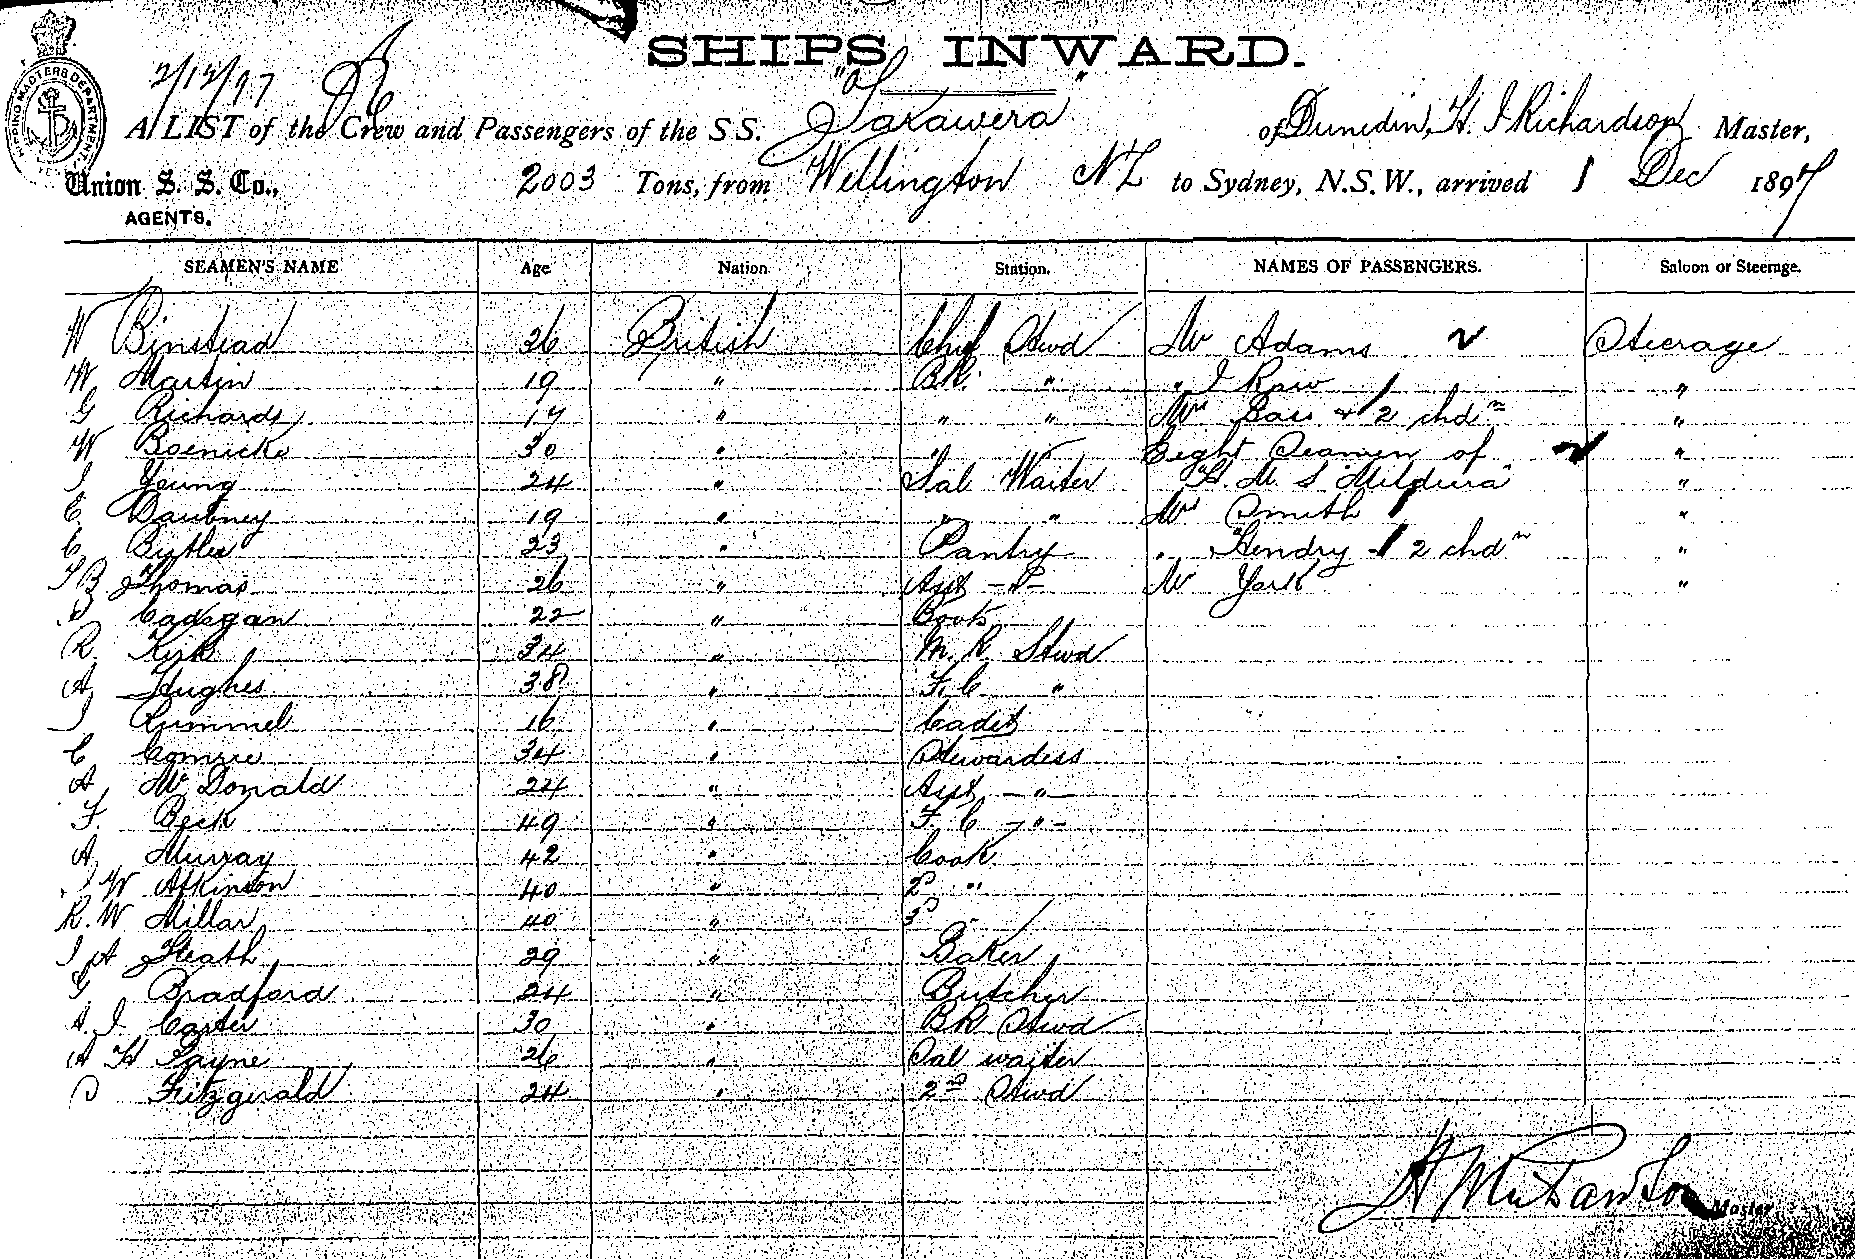 SHIPS INWARD.
2/12/97
A LIST of the Crew and Passengers of the S S. "Tarawera" of Dunedin, H. J Richardson Master,
Union S. S. Co., 2003 Tons, from Wellington NZ to Sydney, N.S.W., arrived 1 Dec 1897
AGENTS.
SEAMEN'S NAME Age Nation Station. NAMES OF PASSENGERS. Saloon or Steerage.
W Binstead 26 British Chief Stwd Mr Adams Steerage
W Martin 19 " BR. " " J Raw "
G Richards 17 " " " Mrs & 2 chdn "
W Boenicke 30 " " Eight Seamen of "
J Young 24 " Sal Waiter H. M. S "Mildura" "
E Daubney 19 " " " Mrs Smith "
C Butler 23 " Pantry " Hendry 2 chdn "
T B Thomas 26 " Asst -"- Mr York "
Cadogan 22 " Boots
R. Kirk 34 " M. R. Stwd
A Hughes 38 " F. C. "
J Rummel 16 " Cadet
C Comrie 34 " Stewardess
A McDonald 24 " Asst -"-
F. Beck 49 " F. C -"-
A Murray 42 " Cook
J W Atkinson 40 " 2D "
R. W Millar 40 " 3D
J A Heath 29 " Baker
G Bradford 24 " Butcher
A. J. Carter 30 " BR Stwd
A H Payne 26 " Sal waiter
D Fitzgerald 24 " 2nd Stwd
Master